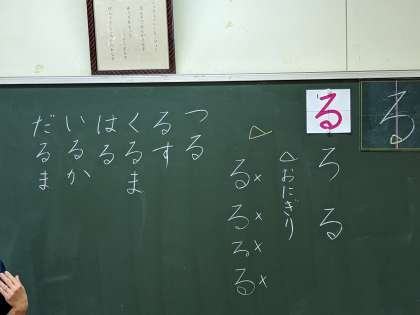 る
る
ろ る
△おにぎり
る×
る×
る×
る×
つる
るす
くるま
はる
いるか
だるま